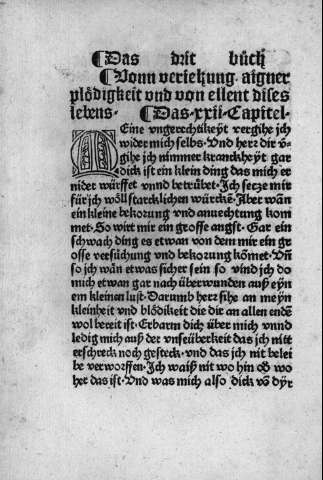 ¶Das drit büch
¶Vonn veriehung· aigner
plödigkeit vnd von ellent dises
lebens· ¶Das·xxii·Capitel·
MEine vngerechtikeyt vergihe jch
wider mich selbs· Vnd herr dir v̈-
gihe jch nummer kranckheyt gar
dick ist ein klein ding das mich er
nider würffet vnnd betrübet· Jch setze mir
für jch wöll starcklichen würckē· Aber wān
ein kleine bekorung vnd anuechtung kom
met· So wirt mir ein grosse angst· Gar ein
schwach ding es etwan von dem mir ein gr
osse versüchung vnd bekorung kōmet· Vn̄
so jch wān etwas sicher sein so vind jch do
mich etwan gar nach überwunden auß eyn
em kleinen lust· Darumb herr sihe an meyn
kleinheit vnd blödikeit die dir an allen endē
wol bereit ist· Erbarm dich über mich vnnd
ledig mich auß der vnseüberkeit das jch nitt
erschreck noch gesteck· vnd das jch nit belei
be verworffen· Jch waiß nit wo hin ob wo
her das ist· Vnd was mich also dick vō dyr